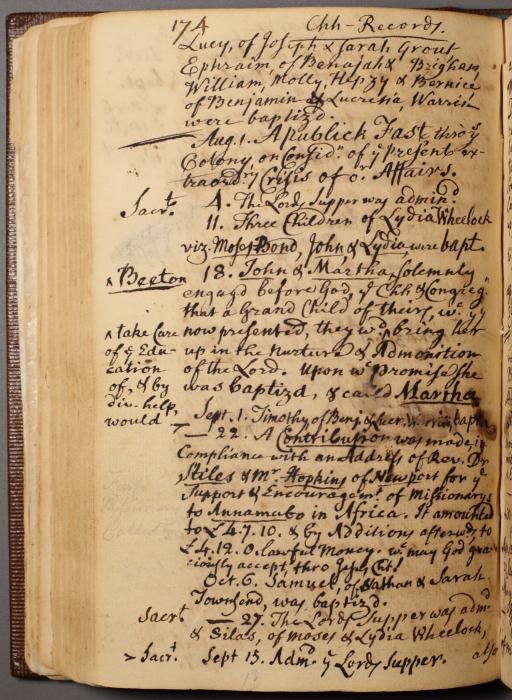 174 Chh-Records.
Lucy, of Joseph & Sarah Grout
Ephraim of Benajah & Brigham,
William, Molly, Hepzy & Bernice
of Benjamin & Lucretia Warrin
were baptizd.
Aug. 1. A publick Fast thro' yͤ
Colony, on Considⁿ. of yͤ present ex-
traordʳy Crisis of o. Affairs.
Sacrᵗ. 4. The Lords Supper was adminᵈ.
11. Three Children of Lydia Wheelock
viz. Moses Bond, John & Lydia, were bapt.
^ Beeton 18. John & Martha, solemnly
engagd before God, yͤ Chh & Congregⁿ
that a Grand Child of theirs, wᶜ yy
^ take Care now presented, they wᵈ bring her
of yͤ Edu- up in the Nurture & Admonition
cation of the Lord. Upon wᶜ promise she
of, & by was baptizd, & calld Martha.
div. help,
would Sept. 1. Timothy of Benj. & Lucr. Warrin bapᵗᵈ
— 22. A Contribution was made in
Compliance with an Address of Rev. Dr.
Stiles & Mʳ. Hopkins of Newport for yͤ
Support & Encouragemᵗ. of Missionarys
to Annamabo in Africa. It amounted
to £4.7.10. & by Additions afterwᵈˢ to
£4.12.0 lawful Money. wᶜ may God gra-
ciously accept thro Jesˢ. Cht.
Oct. 6. Samuel, of Nathan & Sarah
Townsend, was baptizd.
Sacrᵗ — 27. The Lords Supper was admᵈ
& Silas, of Moses & Lydia Wheelock,
> Sacrᵗ. Sept 15. Admᵈ. yͤ Lords Supper. also